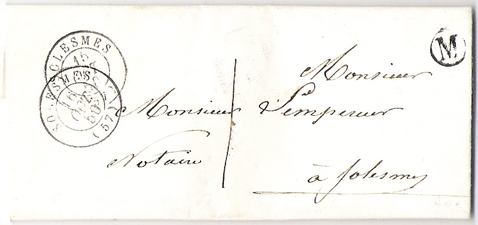 SOLESMES
15
SOLESMES
(57)
M
Monsieur
Monsieur Lempereur
Notaire
à Solesmes